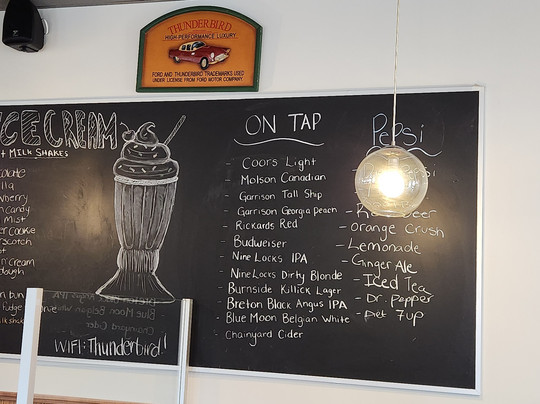 THUNDERBIRD
HIGH PERFORMANCE LUXURY
FORD AND THUNDERBIRD TRADEMARKS USED
UNDER LICENSE FROM FORD MOTOR COMPANY
ICE CREAM
+ MILK SHAKES
Mist
dough
WIFI: Thunderbird!
ON TAP
- Coors Light
- Molson Canadian
- Garrison Tall Ship
- Garrison Georgia Peach
- Rickards Red
- Budweiser
- Nine Locks IPA
- Nine Locks Dirty Blonde
- Burnside Killick Lager
- Breton Black Angus IPA
- Blue Moon Belgian White
- Chainyard Cider
Pepsi
- Orange Crush
- Lemonade
- Ginger Ale
- Iced Tea
- Dr. Pepper
- Diet 7up